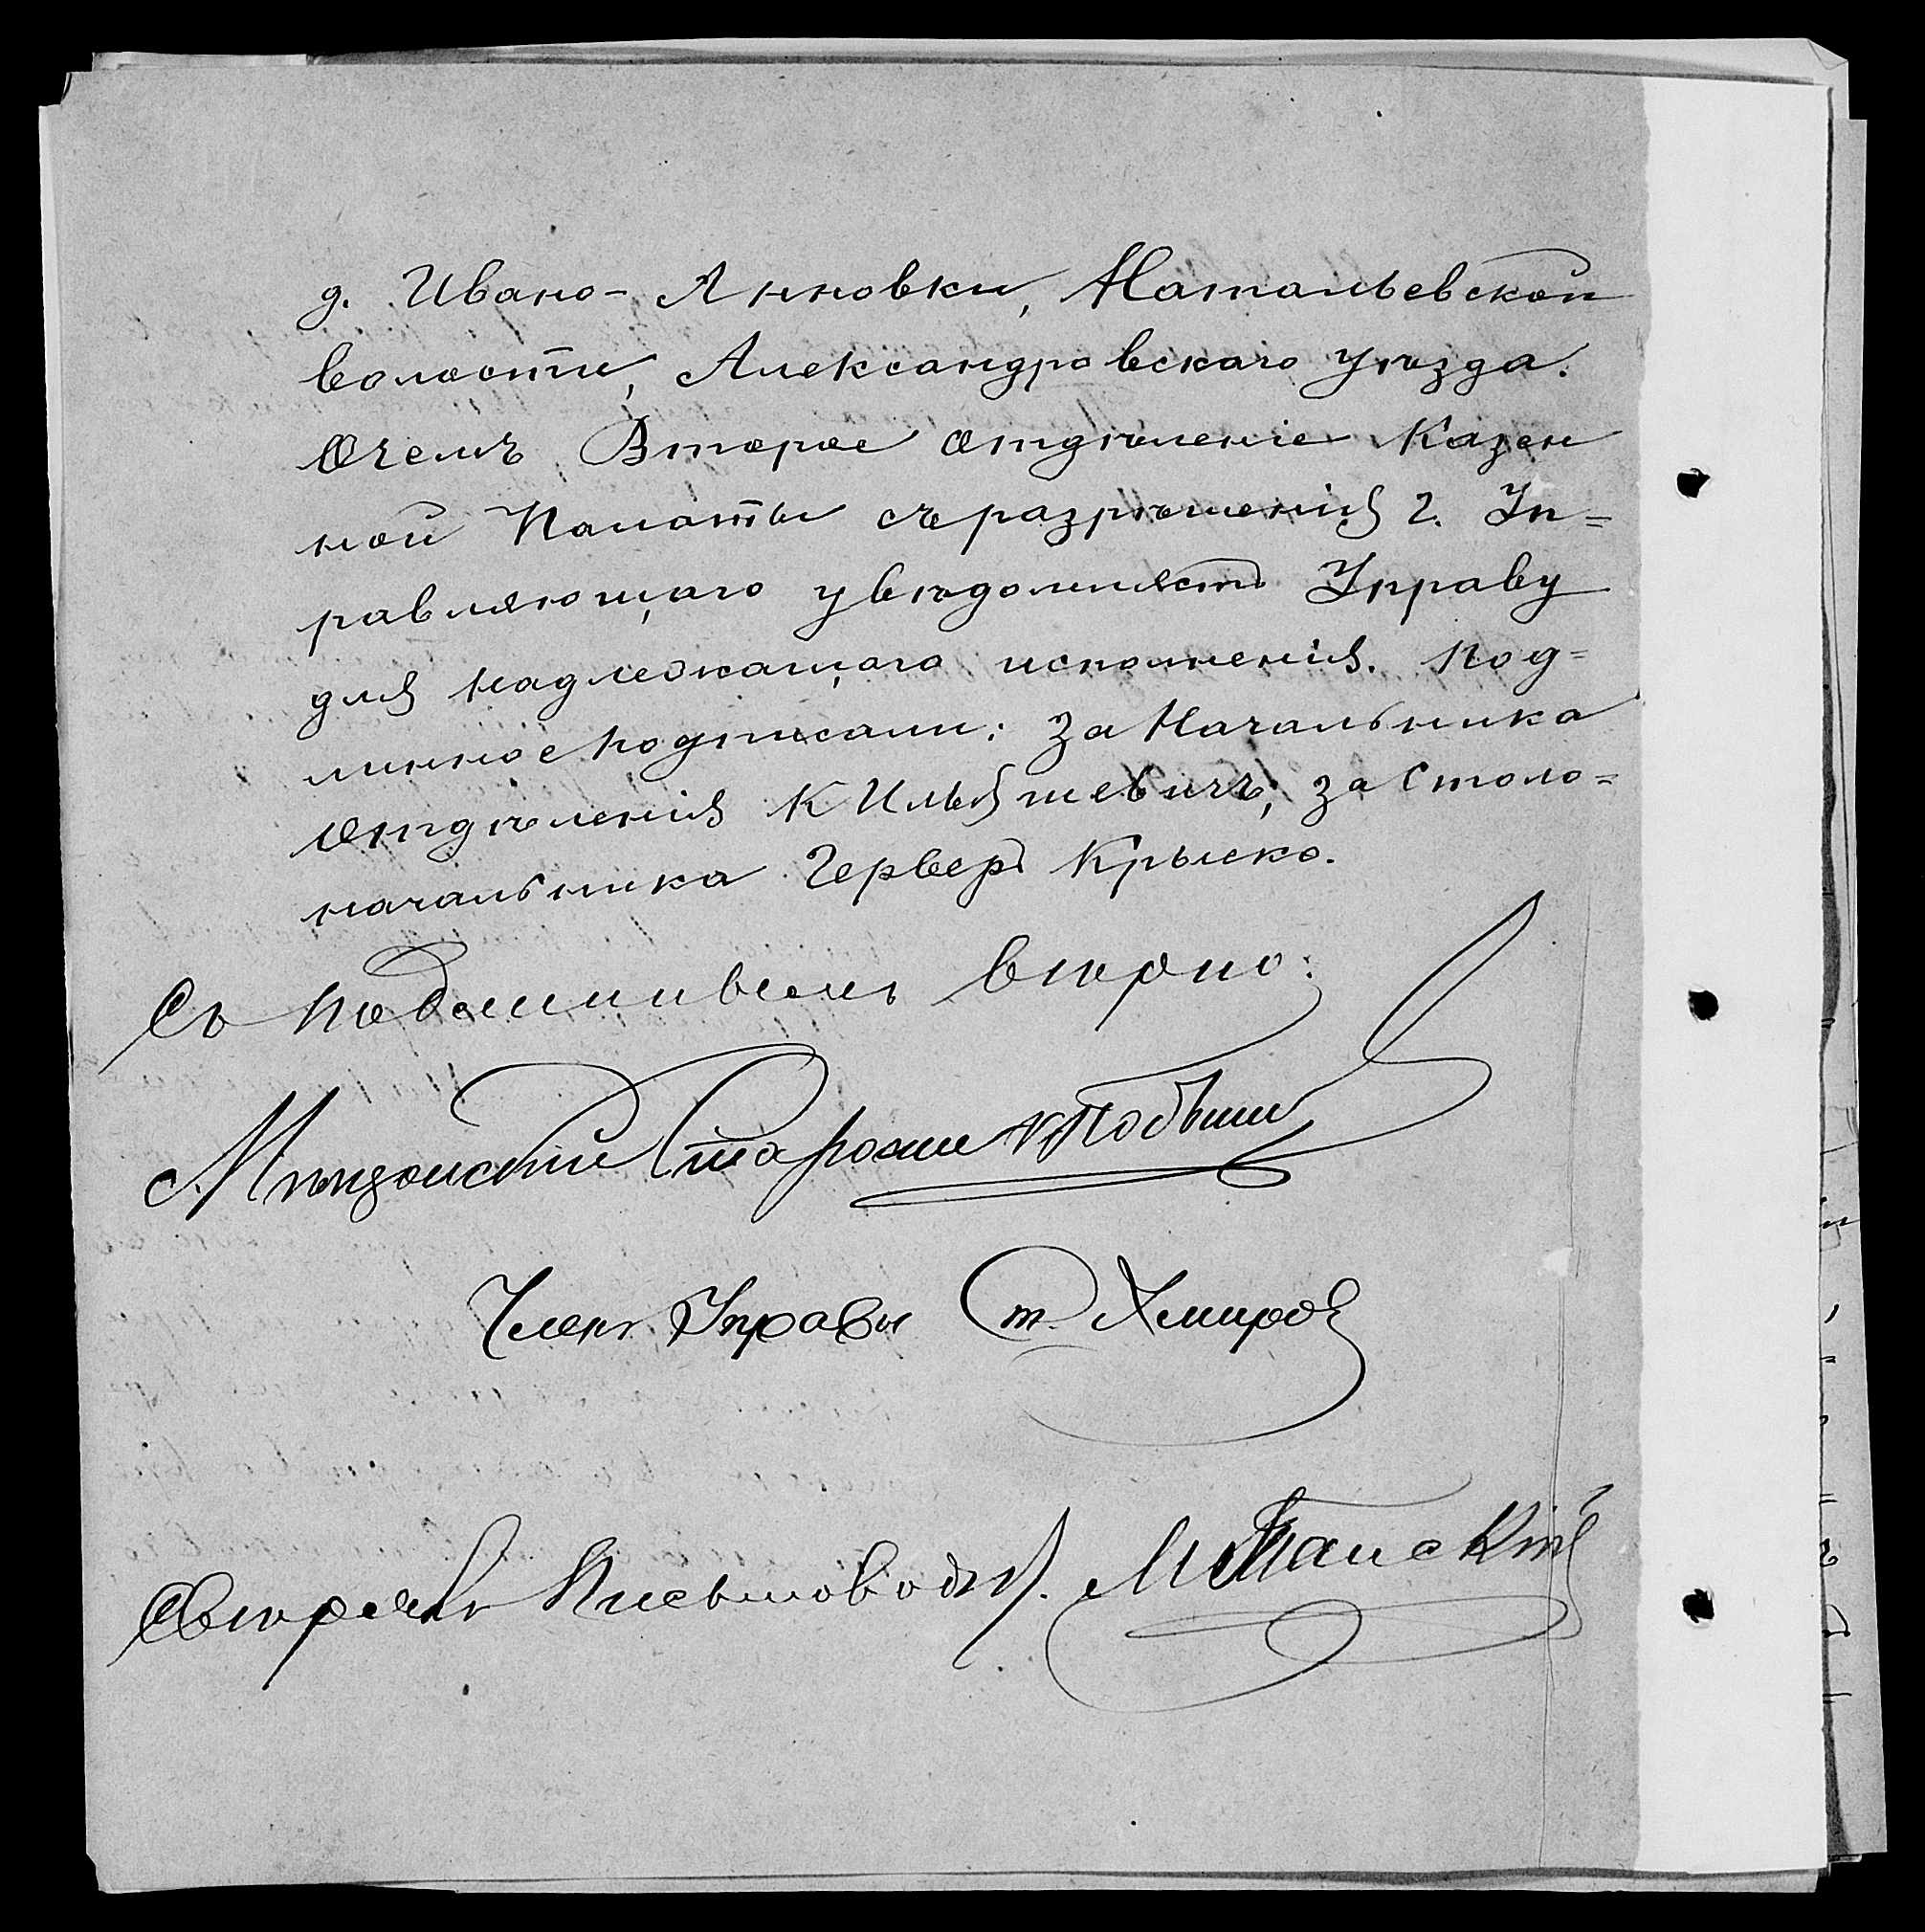 д. Ивано-Анновки, Натальевской
волости, Александровскаго уѣзда.
О чемъ Второе Отдѣленіе Казен
ной Палаты съ разрѣшенія г. Уп=
равляющаго увѣдомляетъ Управу
для надлежащаго исполненія. Под=
линное подписали: За Начальника
Отдѣленія К Ильяшевичъ, за Столо=
начальника Герберъ Крыско.
Съ подлиннымъ вѣрно:
Мѣщанскій Староста
Членъ Управы Хмыровъ
Свѣрялъ Письмоводит.